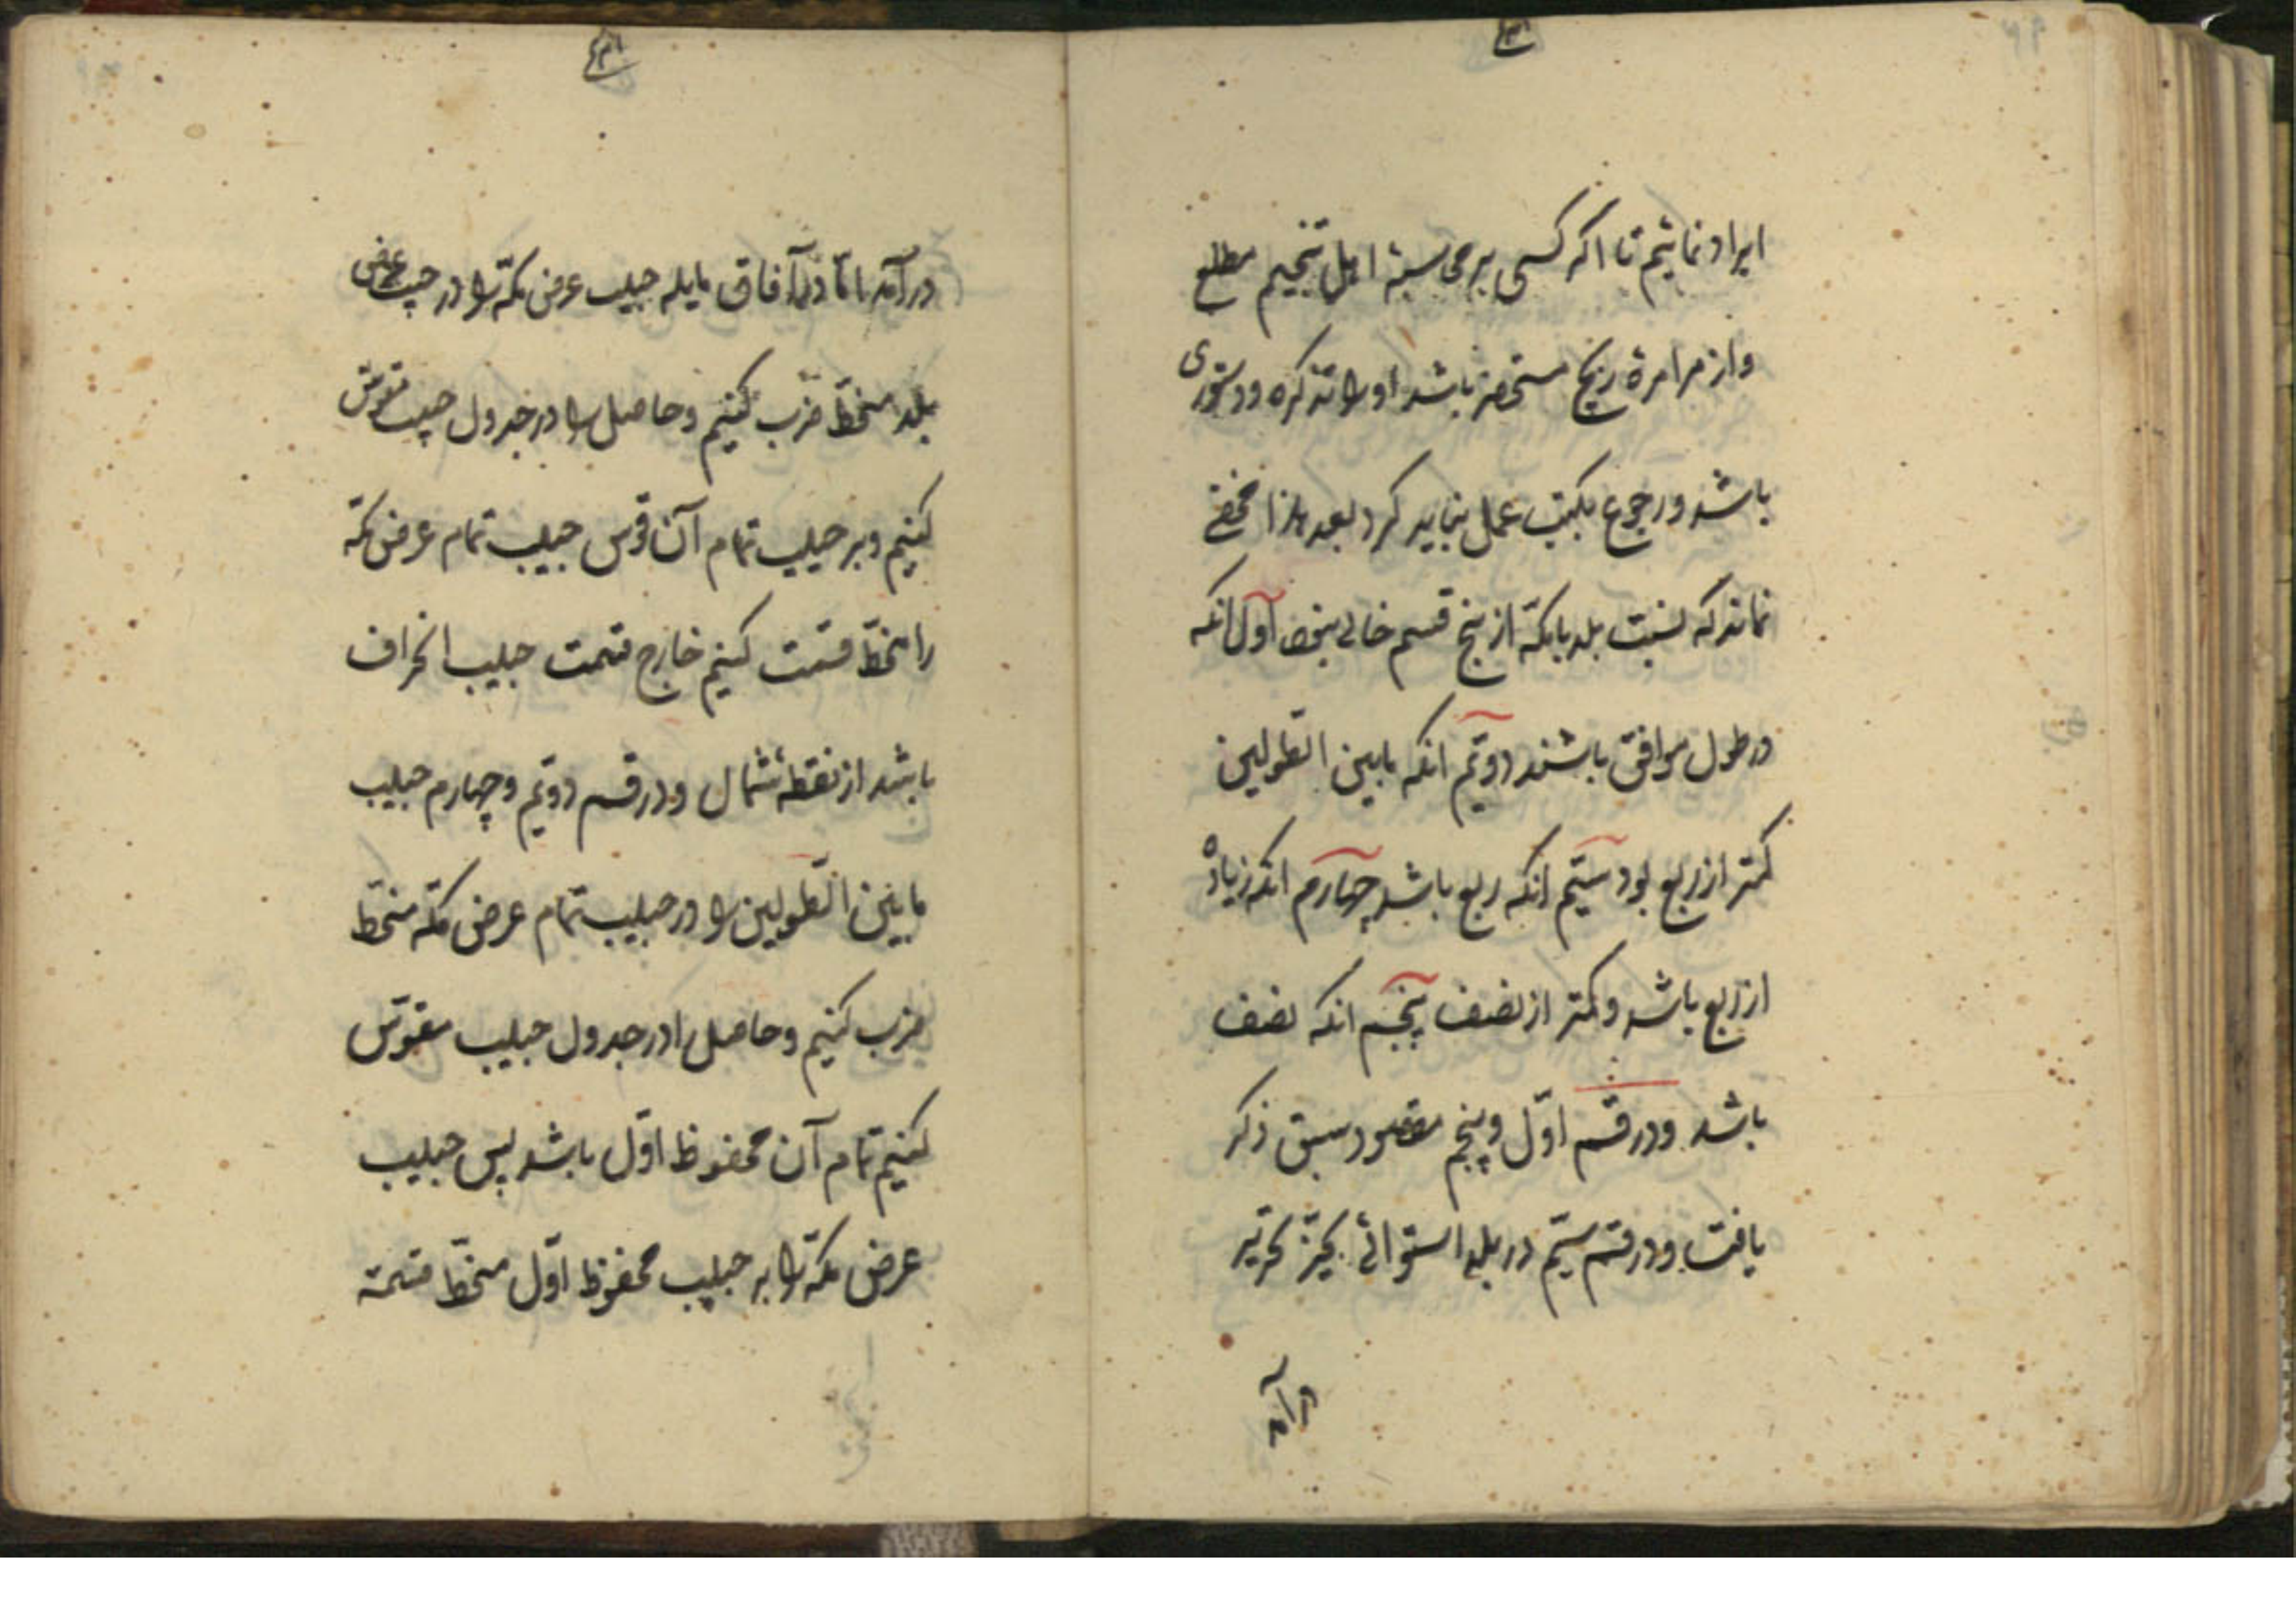 ایراد نمائیم تا اگر کسی بر محاسبهٔ اهل تنجیم مطلع
واز مرامرهٔ زیج مستحضر باشد او را تذکره ودستوری
باشد ورجوع بکتب عمل نباید کرد بعد هذا مخفی
نماند که نسبت بلد بامکّه از پنج قسم خالی نبود اوّل انکه
در طول موافق باشند دویّم انکه مابین الطّولین
کمتر از ربع بود سیّم انکه ربع باشد چهارم انکه زیاده
از ربع باشد وکمتر از نصف پنجم انکه نصف
باشد ودر قسم اوّل وپنجم مقصود سبق ذکر
یافت ودر قسم سیّم در بلد استوائی بحیّز تحریر
درآمد
درآمد امّا در آفاق مایله جیب عرض مکّه را در جیب عرض
بلد منحطّ ضرب کنیم وحاصل را در جدول جیب مقوّس
کنیم وبر جیب تمام آن قوس جیب تمام عرض مکّه
را منحطّ قسمت کنیم خارج قسمت جیب انحراف
باشد از نقطهٔ شمال ودر قسم دویّم وچهارم جیب
مابین الطّولین را در جیب تمام عرض مکّه منحطّ
ضرب کنیم وحاصل را در جدول جیب مقوّس
کنیم تمام آن محفوظ اوّل باشد پس جیب
عرض مکّه را بر جیب محفوظ اوّل منحطّ قسمة